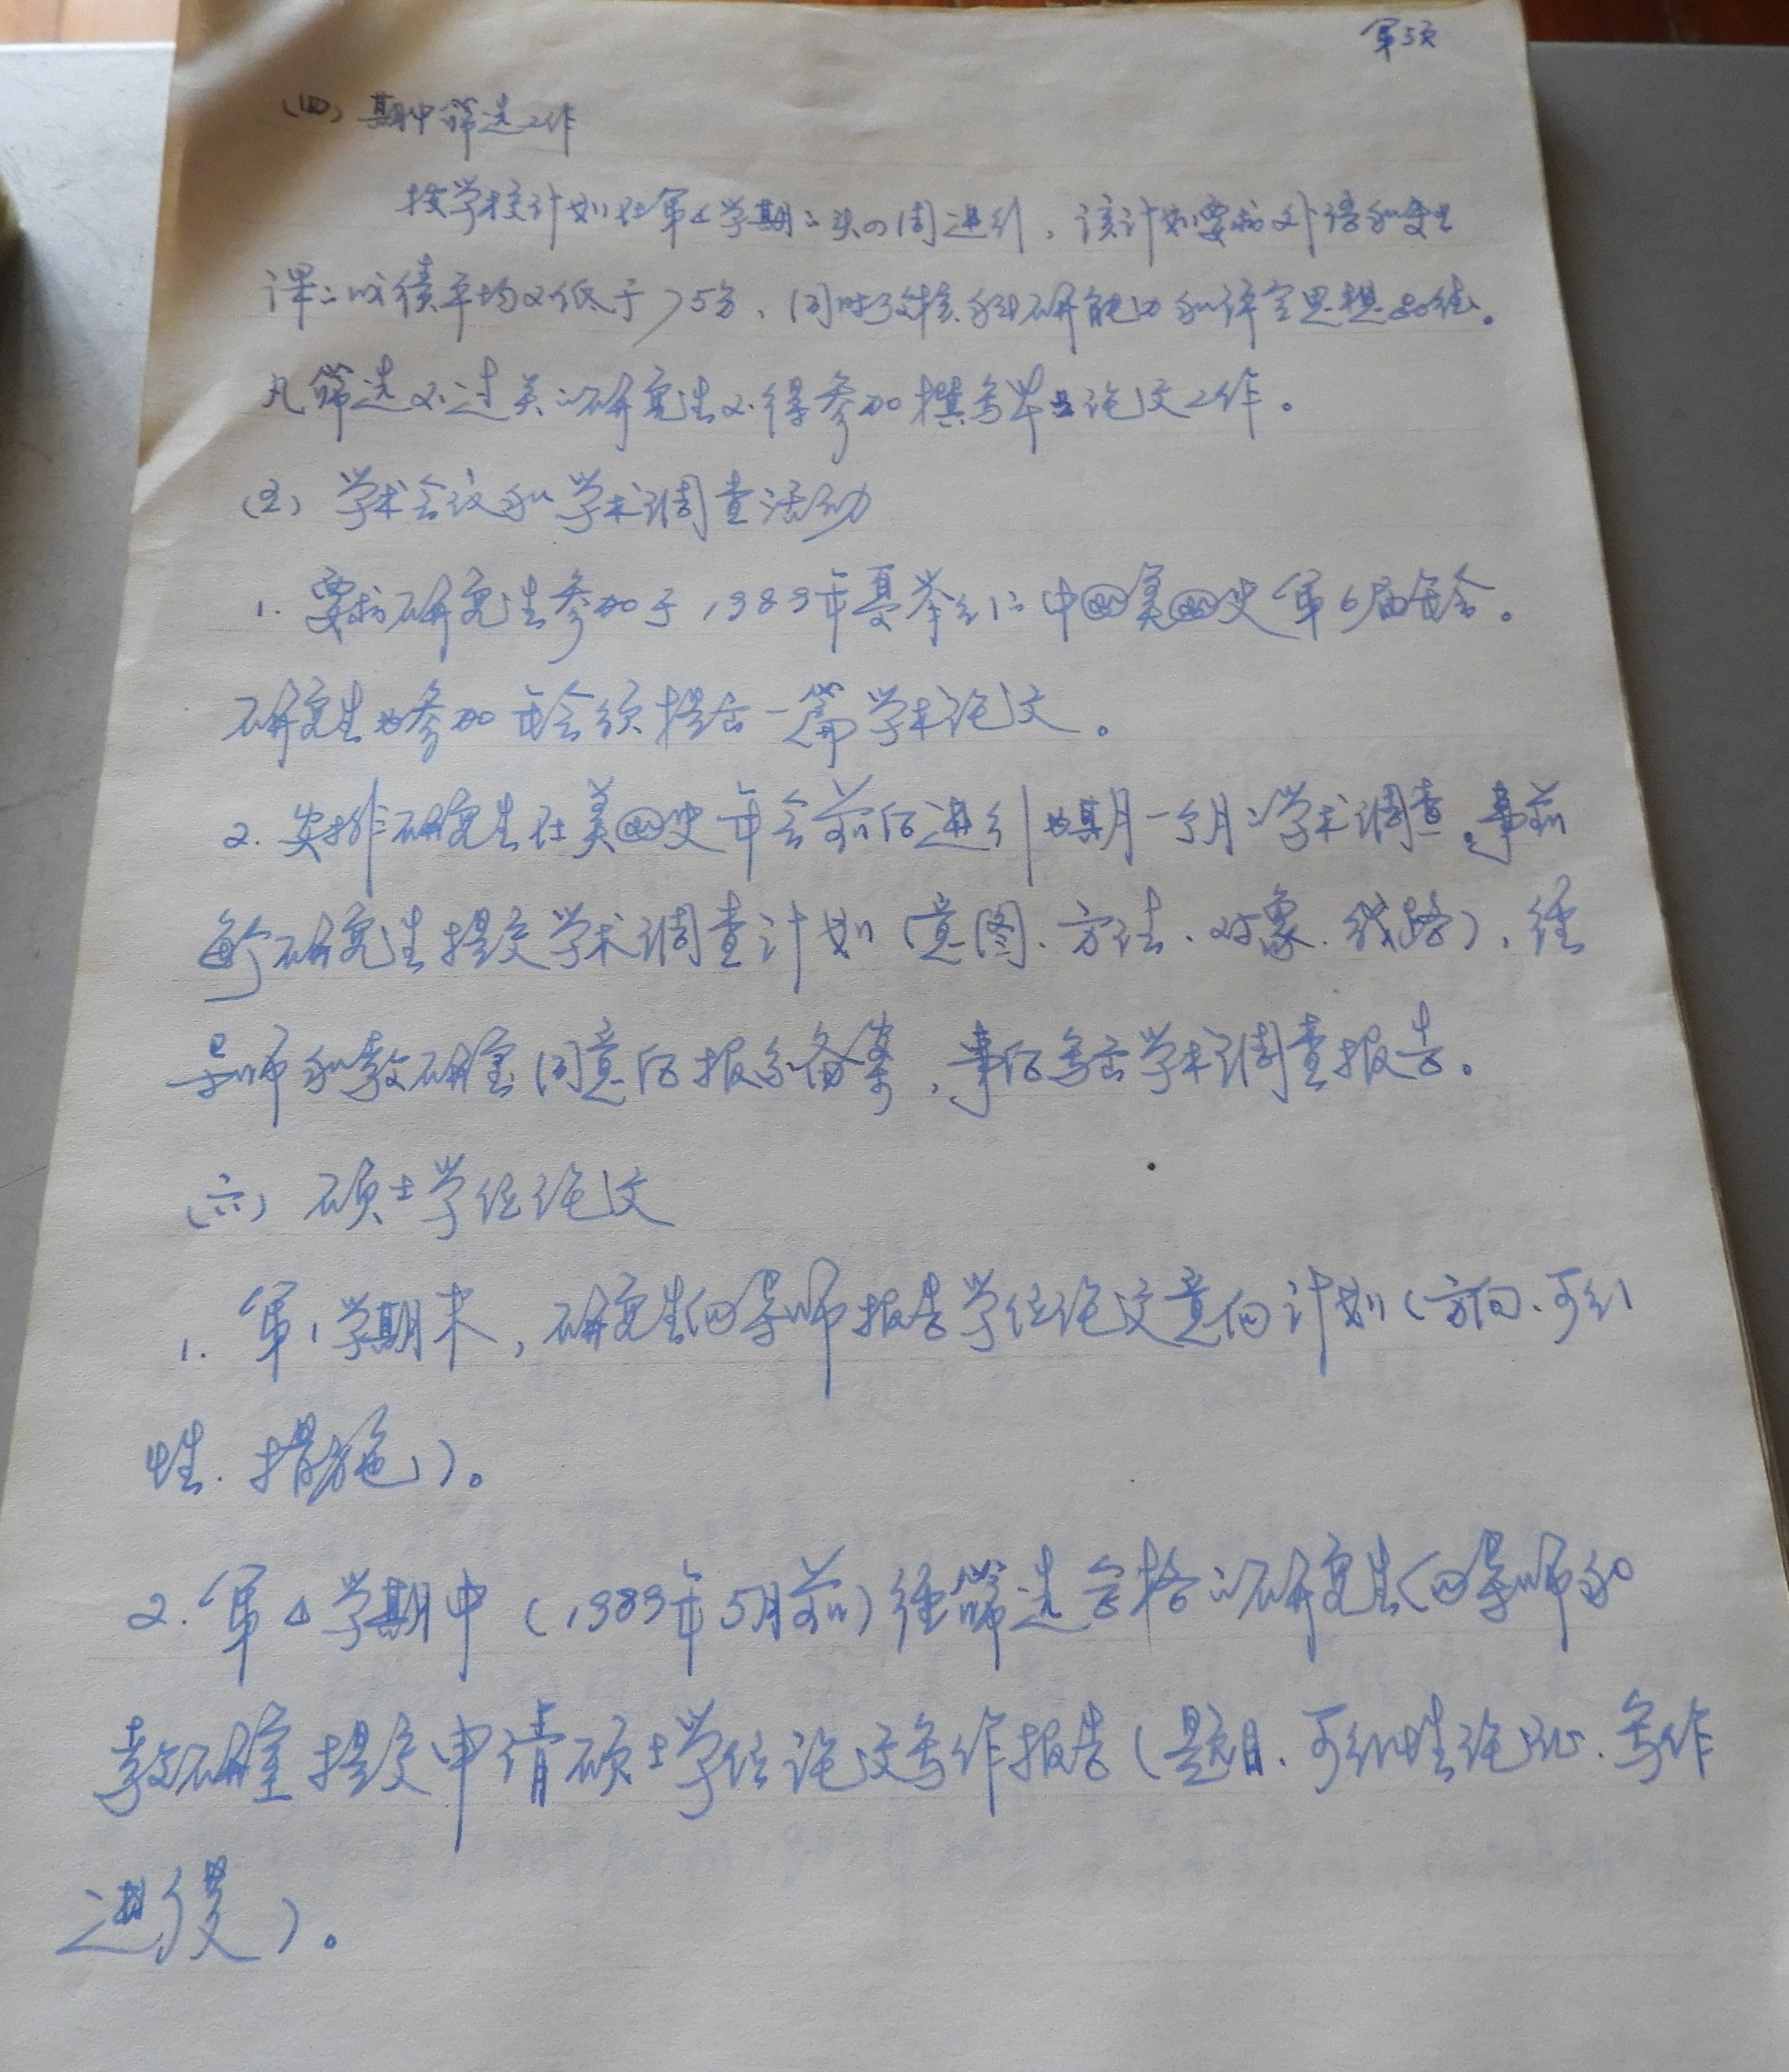 第5页
(四) 期中筛选工作
按学校计划在第4学期的头四周进行，该计划要求外语和专业
课的成绩平均不低于75分、同时考核科研能力和评定思想品德。
凡筛选不过关的研究生不得参加撰写毕业论文工作。
(五) 学术会议和学术调查活动
1. 要求研究生参加于1989年夏举行的中国美国史第6届年会。
研究生为参加年会须提出一篇学术论文。
2. 安排研究生在美国史年会前后进行为期一个月的学术调查。事前
每个研究生提交学术调查计划（意图、方法、对象、线路），经
导师和教研室同意后报系备案，事后写出学术调查报告。
(六) 硕士学位论文
1. 第1学期末，研究生向导师报告学位论文意向计划（方向、可行
性、措施）。
2. 第4学期中（1989年5月前）经筛选合格的研究生向导师和
教研室提交申请硕士学位论文写作报告（题目、可行性论证、写作
进度）。